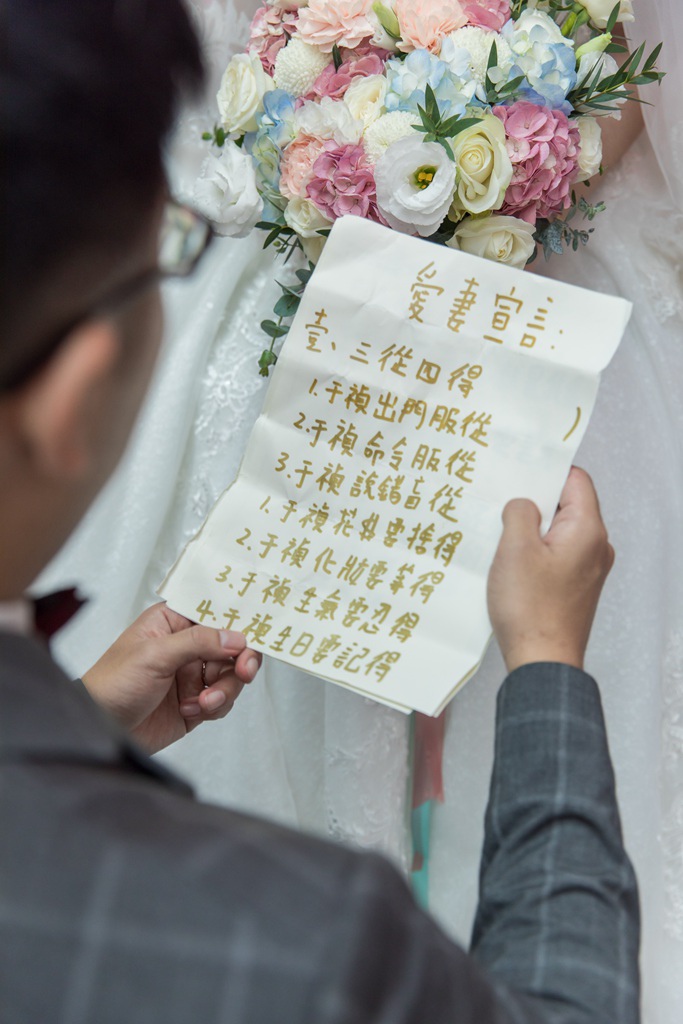 愛妻宣言:
壹、三從四得
1.于禎出門服從
2.于禎命令服從
3.于禎說錯盲從
1.于禎花錢要捨得
2.于禎化妝要等得
3.于禎生氣要忍得
4.于禎生日要記得